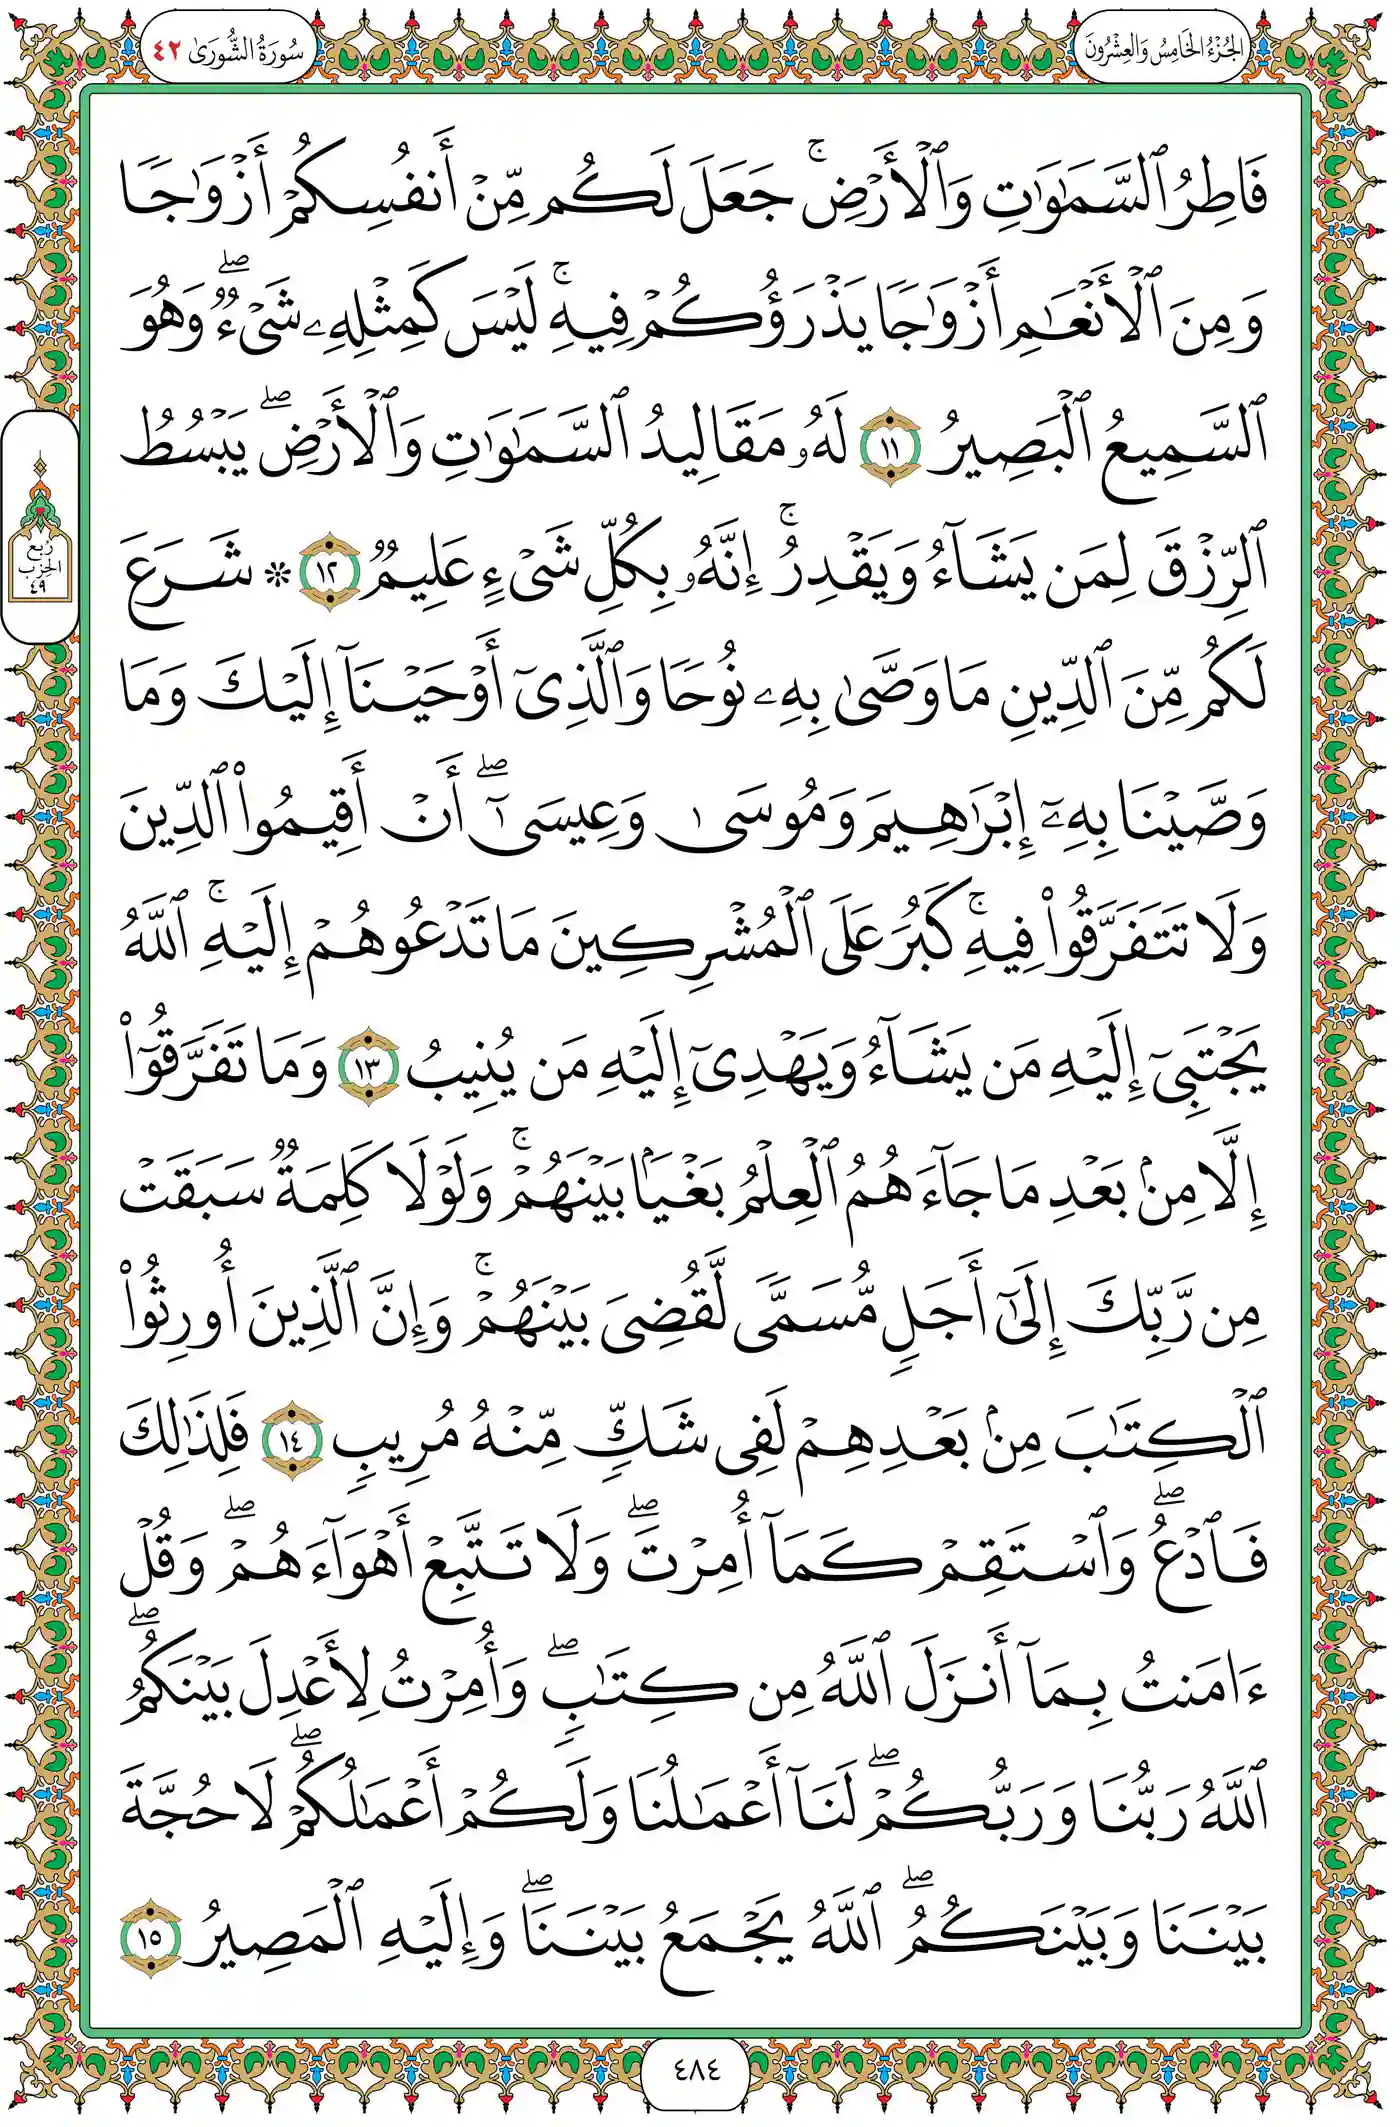 الجزء الخامس والعشرون
سورة الشورى ٤٢
فَاطِرُ ٱلسَّمَٰوَٰتِ وَٱلْأَرْضِ ۚ جَعَلَ لَكُم مِّنْ أَنفُسِكُمْ أَزْوَٰجًا
وَمِنَ ٱلْأَنْعَٰمِ أَزْوَٰجًا يَذْرَؤُكُمْ فِيهِ ۚ لَيْسَ كَمِثْلِهِۦ شَىْءٌ ۖ وَهُوَ
ٱلسَّمِيعُ ٱلْبَصِيرُ ١١ لَهُۥ مَقَالِيدُ ٱلسَّمَٰوَٰتِ وَٱلْأَرْضِ ۖ يَبْسُطُ
ٱلرِّزْقَ لِمَن يَشَآءُ وَيَقْدِرُ ۚ إِنَّهُۥ بِكُلِّ شَىْءٍ عَلِيمٌ ١٢ * شَرَعَ
لَكُم مِّنَ ٱلدِّينِ مَا وَصَّىٰ بِهِۦ نُوحًا وَٱلَّذِىٓ أَوْحَيْنَآ إِلَيْكَ وَمَا
وَصَّيْنَا بِهِۦٓ إِبْرَٰهِيمَ وَمُوسَىٰ وَعِيسَىٰٓ ۖ أَنْ أَقِيمُوا۟ ٱلدِّينَ
وَلَا تَتَفَرَّقُوا۟ فِيهِ ۚ كَبُرَ عَلَى ٱلْمُشْرِكِينَ مَا تَدْعُوهُمْ إِلَيْهِ ۚ ٱللَّهُ
يَجْتَبِىٓ إِلَيْهِ مَن يَشَآءُ وَيَهْدِىٓ إِلَيْهِ مَن يُنِيبُ ١٣ وَمَا تَفَرَّقُوٓا۟
إِلَّا مِنۢ بَعْدِ مَا جَآءَهُمُ ٱلْعِلْمُ بَغْيًۢا بَيْنَهُمْ ۚ وَلَوْلَا كَلِمَةٌ سَبَقَتْ
مِن رَّبِّكَ إِلَىٰٓ أَجَلٍ مُّسَمًّى لَّقُضِىَ بَيْنَهُمْ ۚ وَإِنَّ ٱلَّذِينَ أُورِثُوا۟
ٱلْكِتَٰبَ مِنۢ بَعْدِهِمْ لَفِى شَكٍّ مِّنْهُ مُرِيبٍ ١٤ فَلِذَٰلِكَ
فَٱدْعُ ۖ وَٱسْتَقِمْ كَمَآ أُمِرْتَ ۖ وَلَا تَتَّبِعْ أَهْوَآءَهُمْ ۖ وَقُلْ
ءَامَنتُ بِمَآ أَنزَلَ ٱللَّهُ مِن كِتَٰبٍ ۖ وَأُمِرْتُ لِأَعْدِلَ بَيْنَكُمُ ۖ
ٱللَّهُ رَبُّنَا وَرَبُّكُمْ ۖ لَنَآ أَعْمَٰلُنَا وَلَكُمْ أَعْمَٰلُكُمْ ۖ لَا حُجَّةَ
بَيْنَنَا وَبَيْنَكُمُ ۖ ٱللَّهُ يَجْمَعُ بَيْنَنَا ۖ وَإِلَيْهِ ٱلْمَصِيرُ ١٥
ربع
الحزب
٤٩
٤٨٤